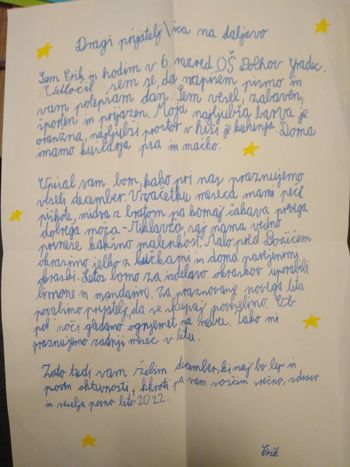 Dragi prijatelj\ica na daljavo
Sem Erik in hodim v 6. razred OŠ Dolhov gradec.
Odločil sem se, da napišem pismo in
vam polepšam dan. Sem vesel, zabaven,
športen in prijazen. Moja najljubša barva je
oranžna, najljubši prostor v hiši je kuhinja. Doma
mamo kuščarja psa in mačko.
Upisal vam bom, kako pri nas praznujemo
veseli december. V začetku meseca mami peče
piškote, midva z bratom pa komaj čakava prvega
dobrega moža - Miklavža, saj nama vedno
prinese kakšno malenkost. Malo pred Božičem
okrasimo jelko z lučkami in doma narejenimi
okraski. Letos bomo za izdelavo okraskov uporabili
limone in mandarine. Za praznovanje novega leta
povabimo prijatelje, da se skupaj poveselimo. Ob
pol noči gledamo ognjemet na nebu. Tako mi
praznujemo zadnji mesec v letu.
Zato tudi vam želim december, ki naj bo lep in
poln skrivnosti, hkrati pa vam voščim srečno, zdravo
in veselja polno leto 2022.
Erik